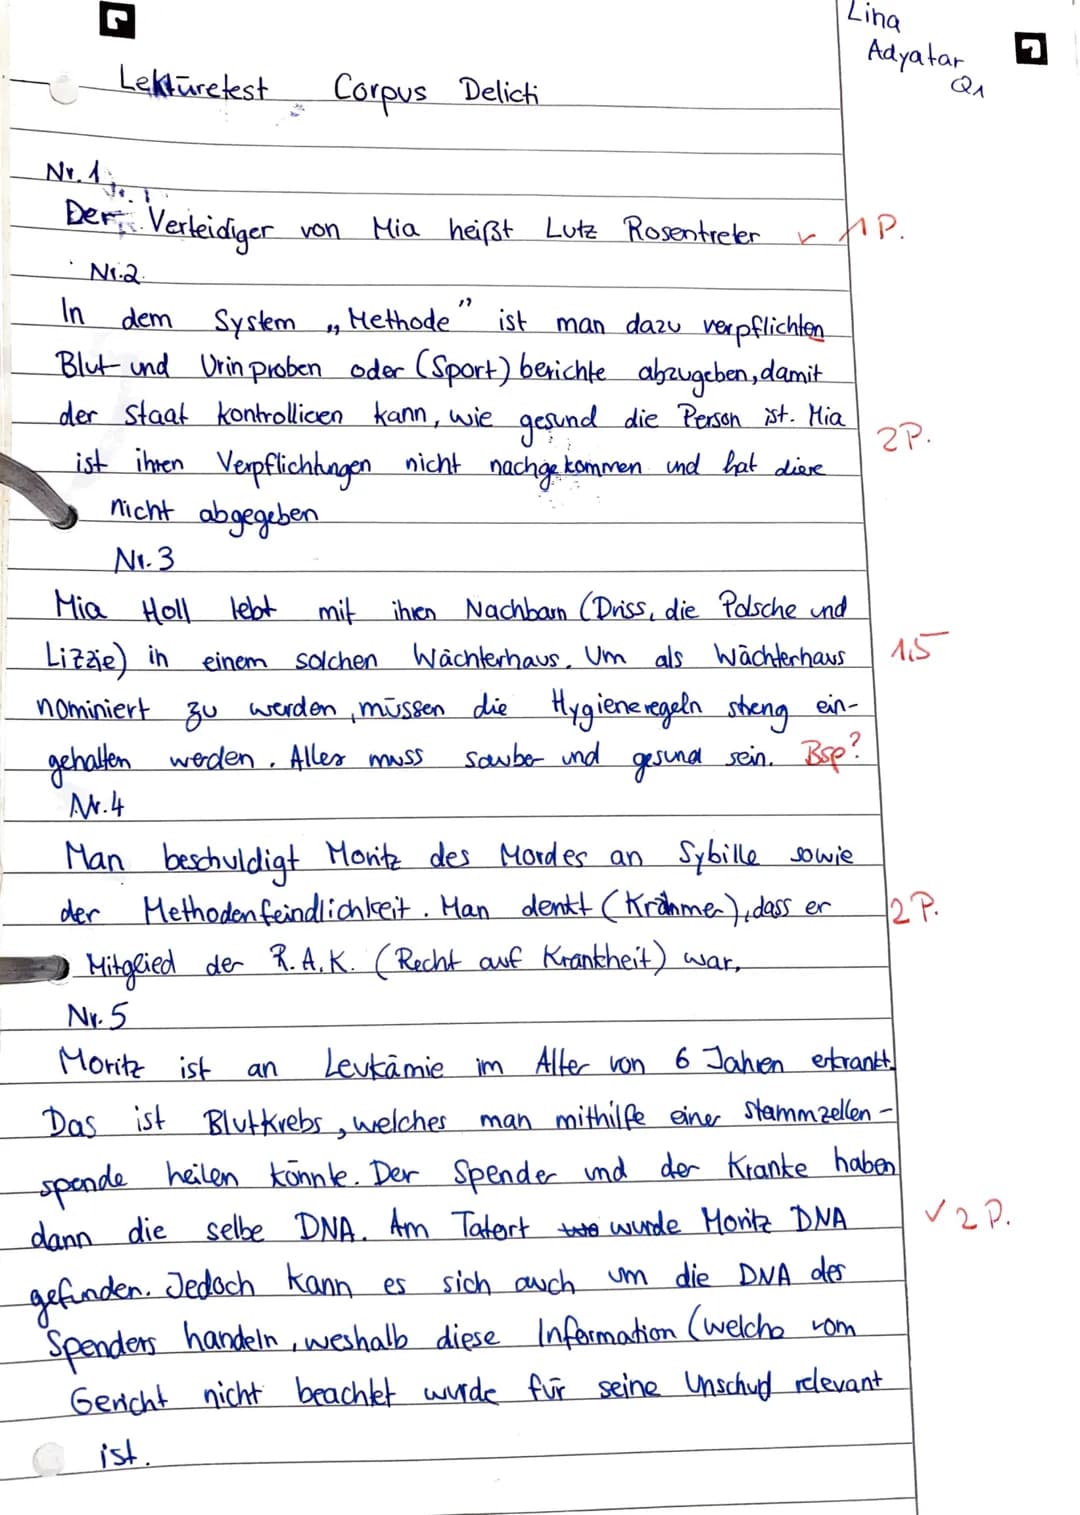 Lina
Adyatar
Q1
Lektüretest Corpus Delicti
Nr. 1
Der Verteidiger von Mia heißt Lutz Rosentreter ✓ 1P.
Nr.2
In dem System „Methode" ist man dazu verpflichten
Blut und Urinproben oder (Sport)berichte abzugeben, damit
der Staat kontrollieren kann, wie gesund die Person ist. Mia
2P.
ist ihren Verpflichtungen nicht nachgekommen und hat diese
nicht abgegeben
Nr. 3
Mia Holl lebt mit ihren Nachbarn (Driss, die Polsche und
Lizzie) in einem solchen Wächterhaus. Um als Wächterhaus 1,5
nominiert zu werden, müssen die Hygieneregeln streng ein-
gehalten werden. Alles muss sauber und gesund sein. Bsp?
Nr.4
Man beschuldigt Moritz des Mordes an Sybille sowie
der Methodenfeindlichkeit. Man denkt (Kramer), dass er 2P.
Mitglied der R.A.K. (Recht auf Krankheit) war.
Nr. 5
Moritz ist an Leukämie im Alter von 6 Jahren erkrankt.
Das ist Blutkrebs, welches man mithilfe einer Stammzellen-
spende heilen könnte. Der Spender und der Kranke haben
dann die selbe DNA. Am Tatort wurde Moritz DNA ✓ 2P.
gefunden. Jedoch kann es sich auch um die DNA des
Spenders handeln, weshalb diese Information (welche vom
Gericht nicht beachtet wurde für seine Unschud relevant
ist.